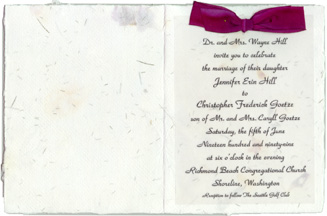 Dr. and Mrs. Wayne Hill
invite you to celebrate
the marriage of their daughter
Jennifer Erin Hill
to
Christopher Frederick Goetze
son of Mr. and Mrs. Caryll Goetze
Saturday, the fifth of June
Nineteen hundred and ninety-nine
at six o'clock in the evening
Richmond Beach Congregational Church
Shoreline, Washington
Reception to follow The Seattle Golf Club